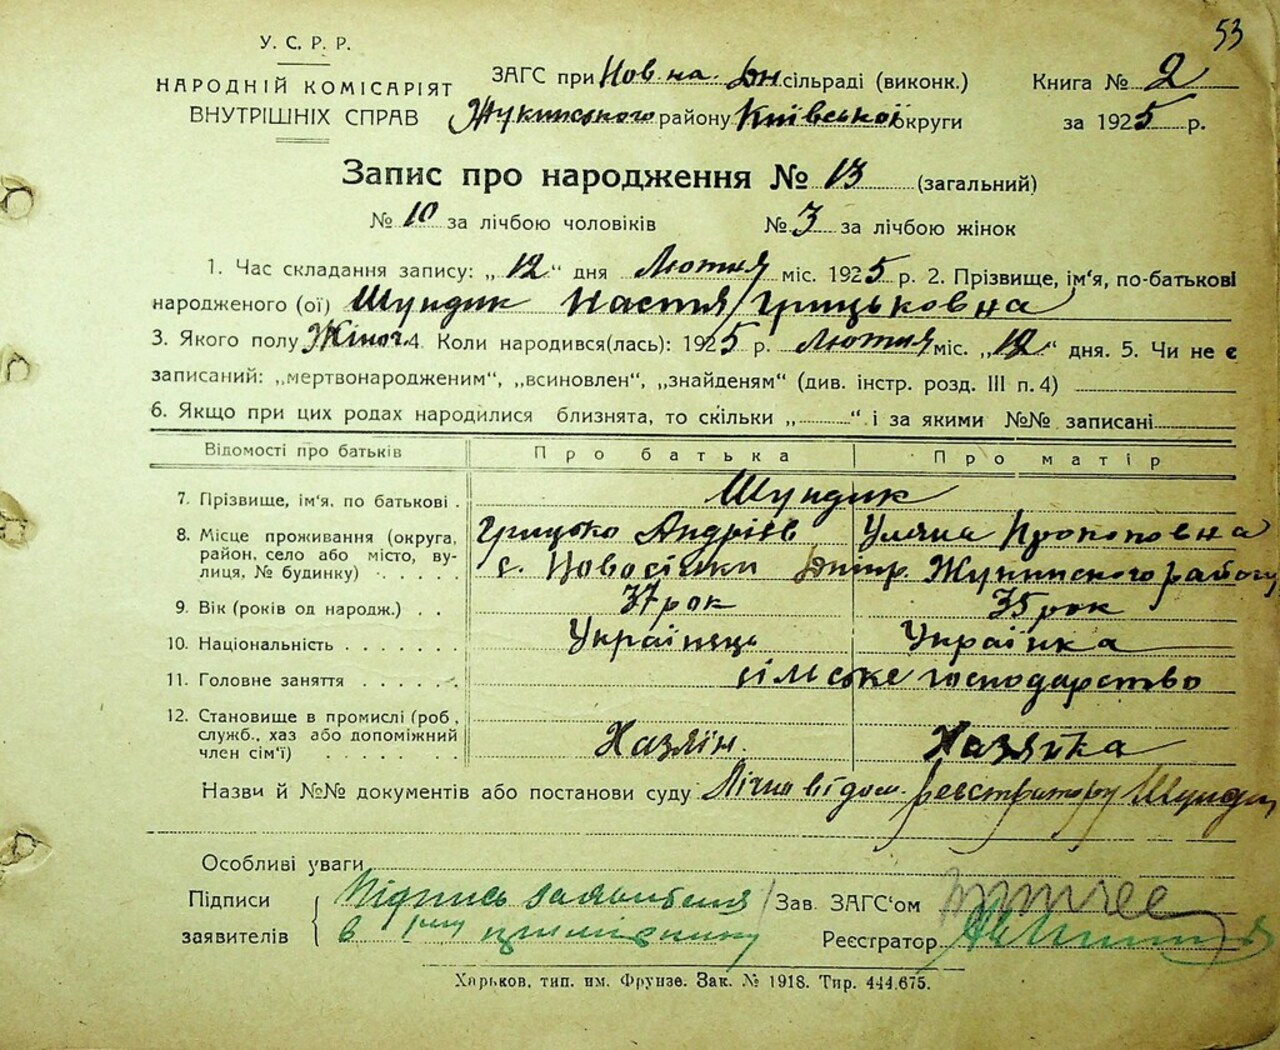 53
У. С. Р. Р.
НАРОДНІЙ КОМІСАРІЯТ
ВНУТРІШНІХ СПРАВ
ЗАГС при Нов. на Дн сільраді (виконк.)
Жукинського району Київської округи
Книга № 2
за 1925 р.
Запис про народження № 13 (загальний)
№ 10 за лічбою чоловіків № 3 за лічбою жінок
1. Час складання запису: „12“ дня Лютня міс. 1925 р. 2. Прізвище, ім'я, по-батькові
народженого (ої) Шундик Настя Грицьковна
3. Якого полу Жіноч. 4. Коли народився(лась): 1925 р. Лютня міс. „12“ дня. 5. Чи не є
записаний: „мертвонародженим“, „всиновлен“, „знайденям“ (див. інстр. розд. III п. 4)
6. Якщо при цих родах народилися близнята, то скільки „ “ і за якими №№ записані
Відомості про батьків Про батька Про матір
7. Прізвище, ім'я, по батькові . Шундик
Грицько Андріев Уляна Прокоповна
8. Місце проживання (округа,
район, село або місто, ву-
лиця, № будинку) . . . . .
с. Новосілки Дніпр. Жукинского району
9. Вік (років од народж.) . . 37 рок 35 рок
10. Національність . . . . . . . Українець Українка
11. Головне заняття . . . . . . сільське господарство
12. Становище в промислі (роб.,
служб., хаз або допоміжний
член сім'ї) . . . . . . . . Хазяїн. Хазяйка
Назви й №№ документів або постанови суду Лічно відом. реєстратору
Особливі уваги
Підписи
заявителів
Підпись заявителя
в 1му примірнику
Зав. ЗАГС'ом
Реєстратор
Харьков, тип. им. Фрунзе. Зак. № 1918. Тир. 444.675.